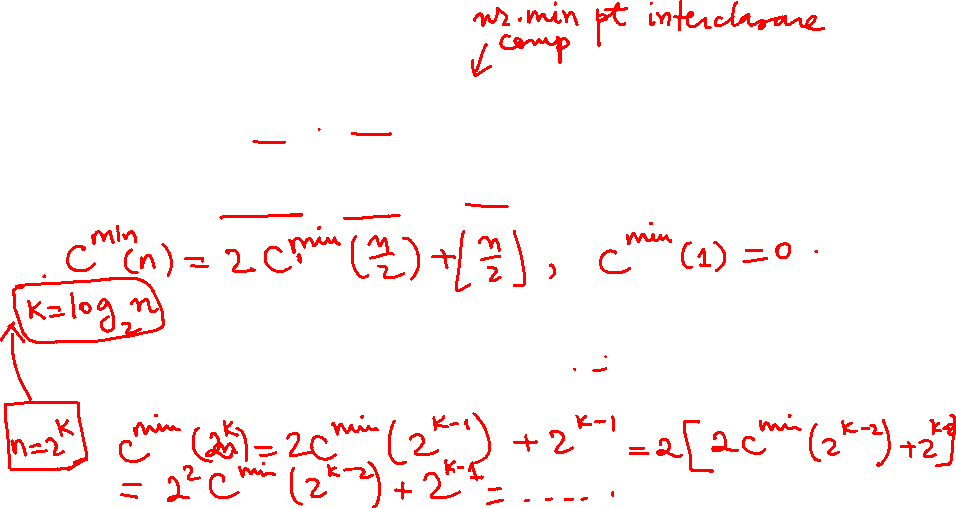 nr. min pt interclasare
comp
C^min(n) = 2 C^min(n/2) + [n/2], C^min(1) = 0.
k = log_2 n
n = 2^k C^min(2^k) = 2C^min(2^(k-1)) + 2^(k-1) = 2[2C^min(2^(k-2)) + 2^(k-2)]
= 2^2 C^min(2^(k-2)) + 2^(k-1) = ......